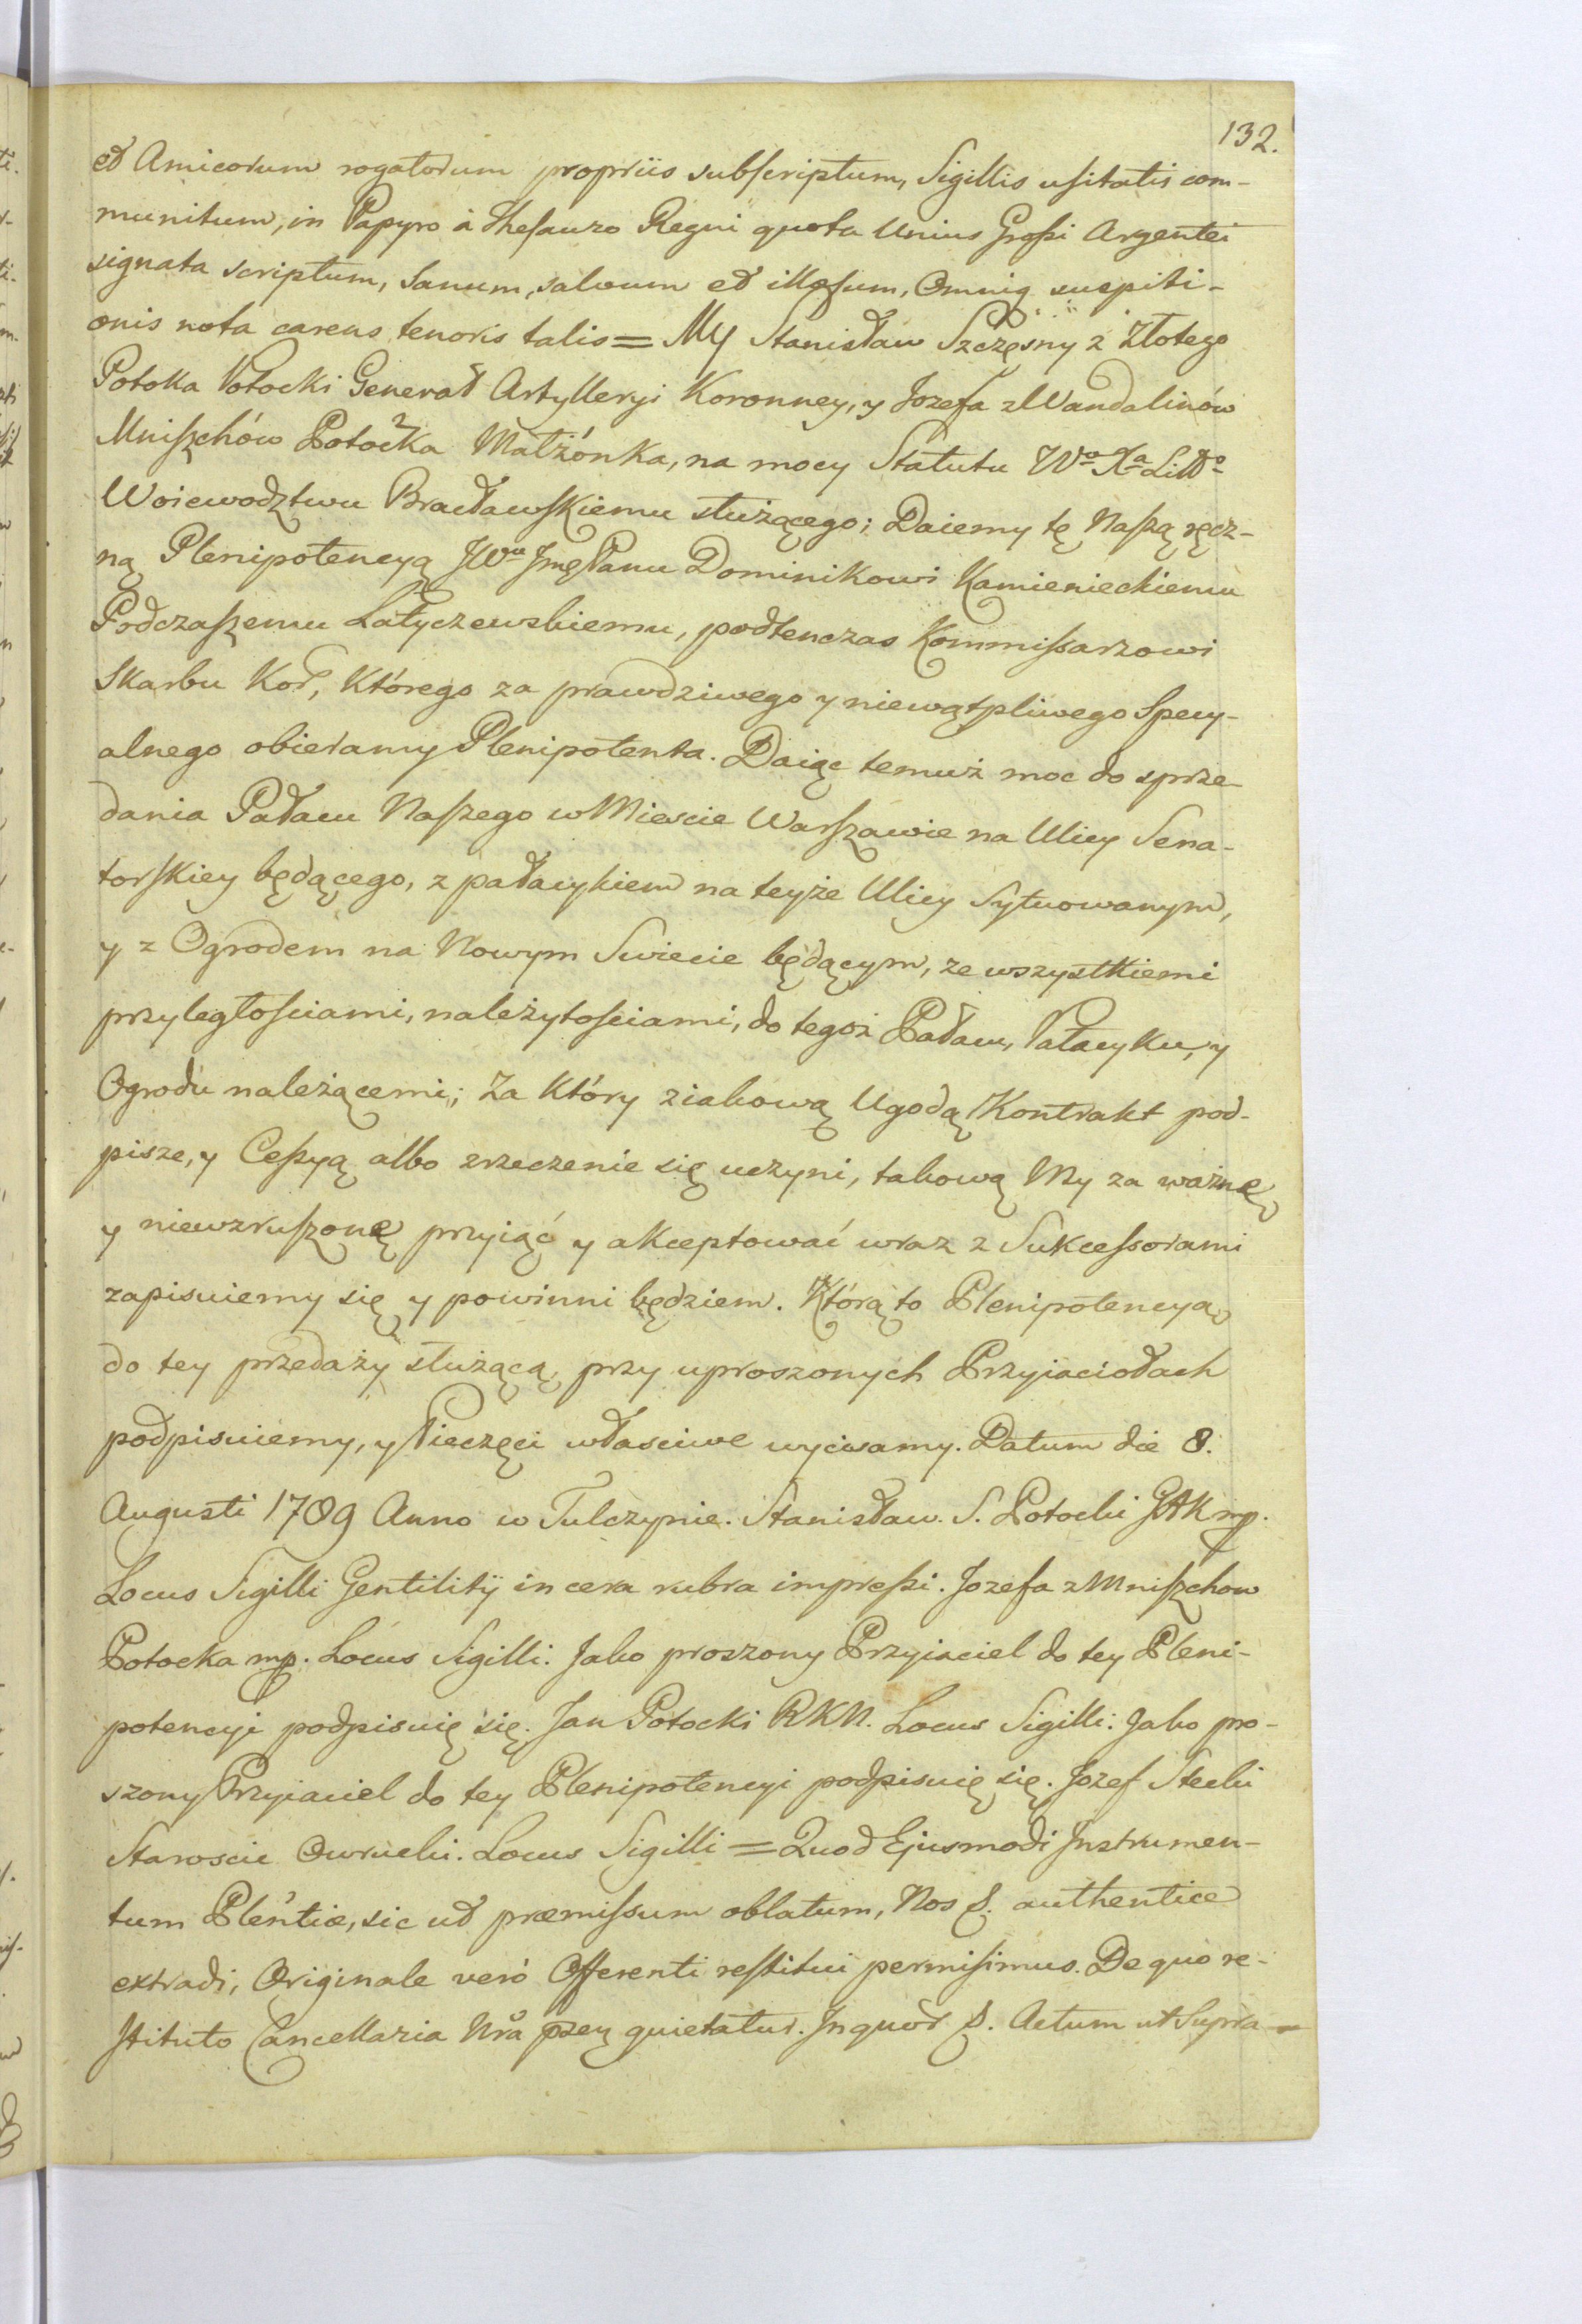 132.
et Amicorum rogatorum propriis subscriptum, Sigillis usitatis com-
munitum, in Papyro à Thesauro Regni quota Unius Grossi Argentei
signata scriptum, Sanum, salvum et illæsum, Omniq suspiti-
onis nota carens tenoris talis = My Stanisław Szczęsny z Złotego
Potoka Potocki Generał Artylleryi Koronney, y Jozefa z Wandalinów
Mniszchów Potocka Małżónka, na mocy Statutu Wo Xa Litto
Woiewodztwu Bracławskiemu służącego; Daiemy tę Naszą ręcz-
ną Plenipotencyą JWu Jmę Panu Dominikowi Kamienieckiemu
Podczaszemu Latyczewskiemu, podtenczas Kommissarzowi
Skarbu Kor, Którego za prawdziwego y niewątpliwego Specy-
alnego obieramy Plenipotenta. Daiąc temuż moc do sprze-
dania Pałacu Naszego w Miescie Warszawie na Ulicy Sena-
torskiey będącego, z pałacykiem na teyże Ulicy Sytuowanym,
y z Ogrodem na Nowym Swiecie będącym, ze wszystkiemi
przyległościami, należytościami, do tegoż Pałacu, Pałacyku, y
Ogrodu należącemi; Za Który ziakową Ugodą Kontrakt pod-
pisze, y Cessyą albo zrzeczenie się uczyni, takową My za ważnę
y niewzruszonę przyiąć y akceptować wraz z Sukcessorami
zapisuiemy się y powinni będziem. Którą to Plenipotencyą
do tey przedaży służącą, przy uproszonych Przyiaciołach
podpisuiemy, y Pieczęci własciwe wyciskamy. Datum die 8.
Augusti 1789 Anno w Tulczynie. Stanisław. S. Potocki GAK mp.
Locus Sigilli Gentilitij in cera rubra impressi. Jozefa z Mniszchow
Potocka mp. Locus Sigilli. Jako proszony Przyiaciel do tey Pleni-
potencyi podpisuię się. Jan Potocki RKN. Locus Sigilli: Jako pro-
szony Przyiaciel do tey Plenipotencyi podpisuię się. Jozef Stecki
Staroscic Owrucki. Locus Sigilli = Quod Ejusmodi Instrumen-
tum Plentiæ, sic ut præmissum oblatum, Nos S. authentice
extradi, Originale veró Offerenti restitui permisimus. De quo re-
stituto Cancellaria Nra pzen quietatur. In quor S. Actum ut Supra =